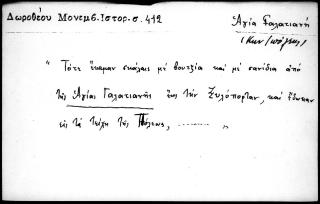 Δωροθέου Μονεμβ. Ιστορ. σ. 412
Ἁγία Γαλατιανή
(Κων/πόλεως)
"Τότε ἔκαμαν σκάλαις μὲ βουτζία καὶ μὲ σανίδια ἀπὸ
τῆς Ἁγίας Γαλατιανῆς ἕως τὴν Ξυλόπορταν, καὶ ἔδωκαν
εἰς τὰ τείχη τῆς Πόλεως, ........ "